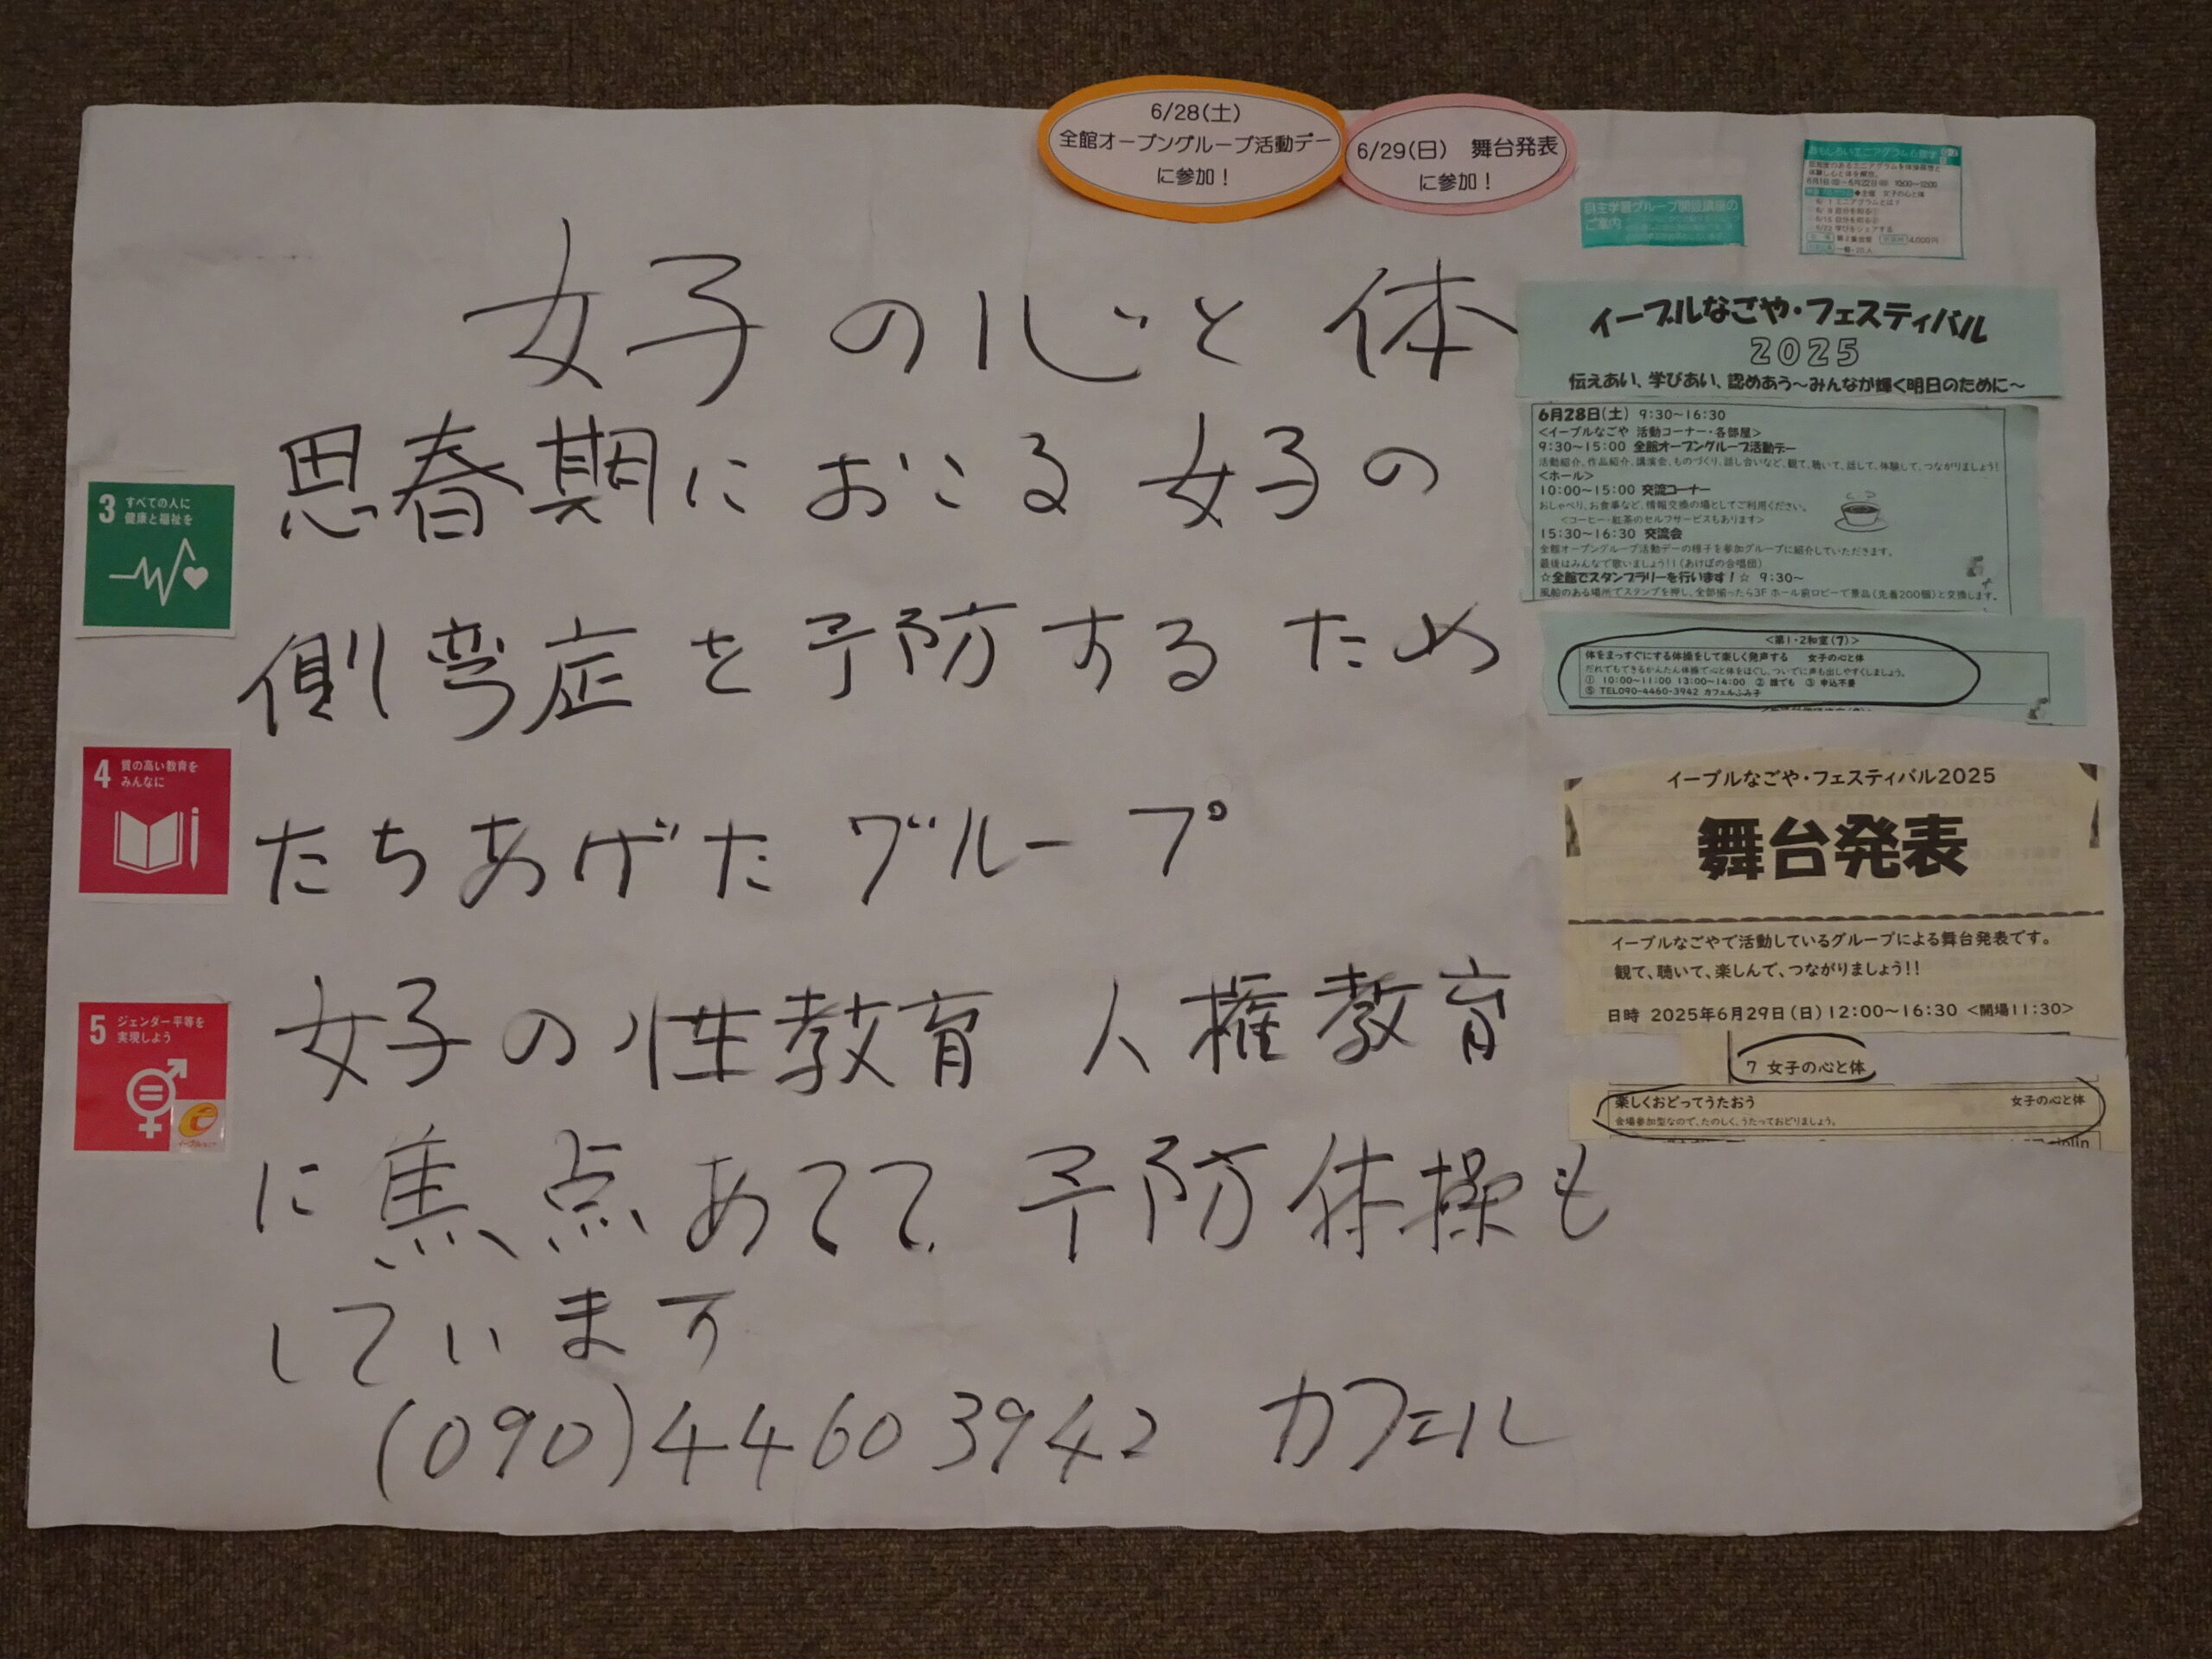 6/28(土)
全館オープングループ活動デー
に参加！
6/29(日) 舞台発表
に参加！
女子の心と体
思春期におこる女子の
側弯症を予防するため
たちあげたグループ
女子の性教育 人権教育
に焦点あてて、予防体操も
しています
(090)44603942 カフェル
3 すべての人に
健康と福祉を
4 質の高い教育を
みんなに
5 ジェンダー平等を
実現しよう
自主学習グループ開設講座の
ご案内
イーブルなごや・フェスティバル
2025
伝えあい、学びあい、認めあう～みんなが輝く明日のために～
6月28日(土) 9:30～16:30
<イーブルなごや 活動コーナー・各部屋>
9:30～15:00 全館オープングループ活動デー
活動紹介、作品紹介、講演会、ものづくり、話し合いなど、観て、聴いて、話して、体験して、つながりましょう!
<ホール>
10:00～15:00 交流コーナー
おしゃべり、お食事など、情報交換の場としてご利用ください。
<コーヒー・紅茶のセルフサービスもあります>
15:30～16:30 交流会
全館オープングループ活動デーの様子を参加グループに紹介していただきます。
最後はみんなで歌いましょう!!(あけぼの合唱団)
☆全館でスタンプラリーを行います!☆ 9:30～
風船のある場所でスタンプを押し、全部揃ったら3F ホール前ロビーで景品(先着200個)と交換します。
<第1・2和室(7)>
体をまっすぐにする体操をして楽しく発声する 女子の心と体
だれでもできるかんたん体操で心と体をほぐし、ついでに声も出しやすくしましょう。
① 10:00～11:00 13:00～14:00 ② 誰でも ③ 申込不要
⑤ TEL090-4460-3942 カフェルふみ子
イーブルなごや・フェスティバル2025
舞台発表
イーブルなごやで活動しているグループによる舞台発表です。
観て、聴いて、楽しんで、つながりましょう!!
日時 2025年6月29日(日)12:00～16:30 <開場11:30>
7 女子の心と体
楽しくおどってうたおう 女子の心と体
会場参加型なので、たのしく、うたっておどりましょう。